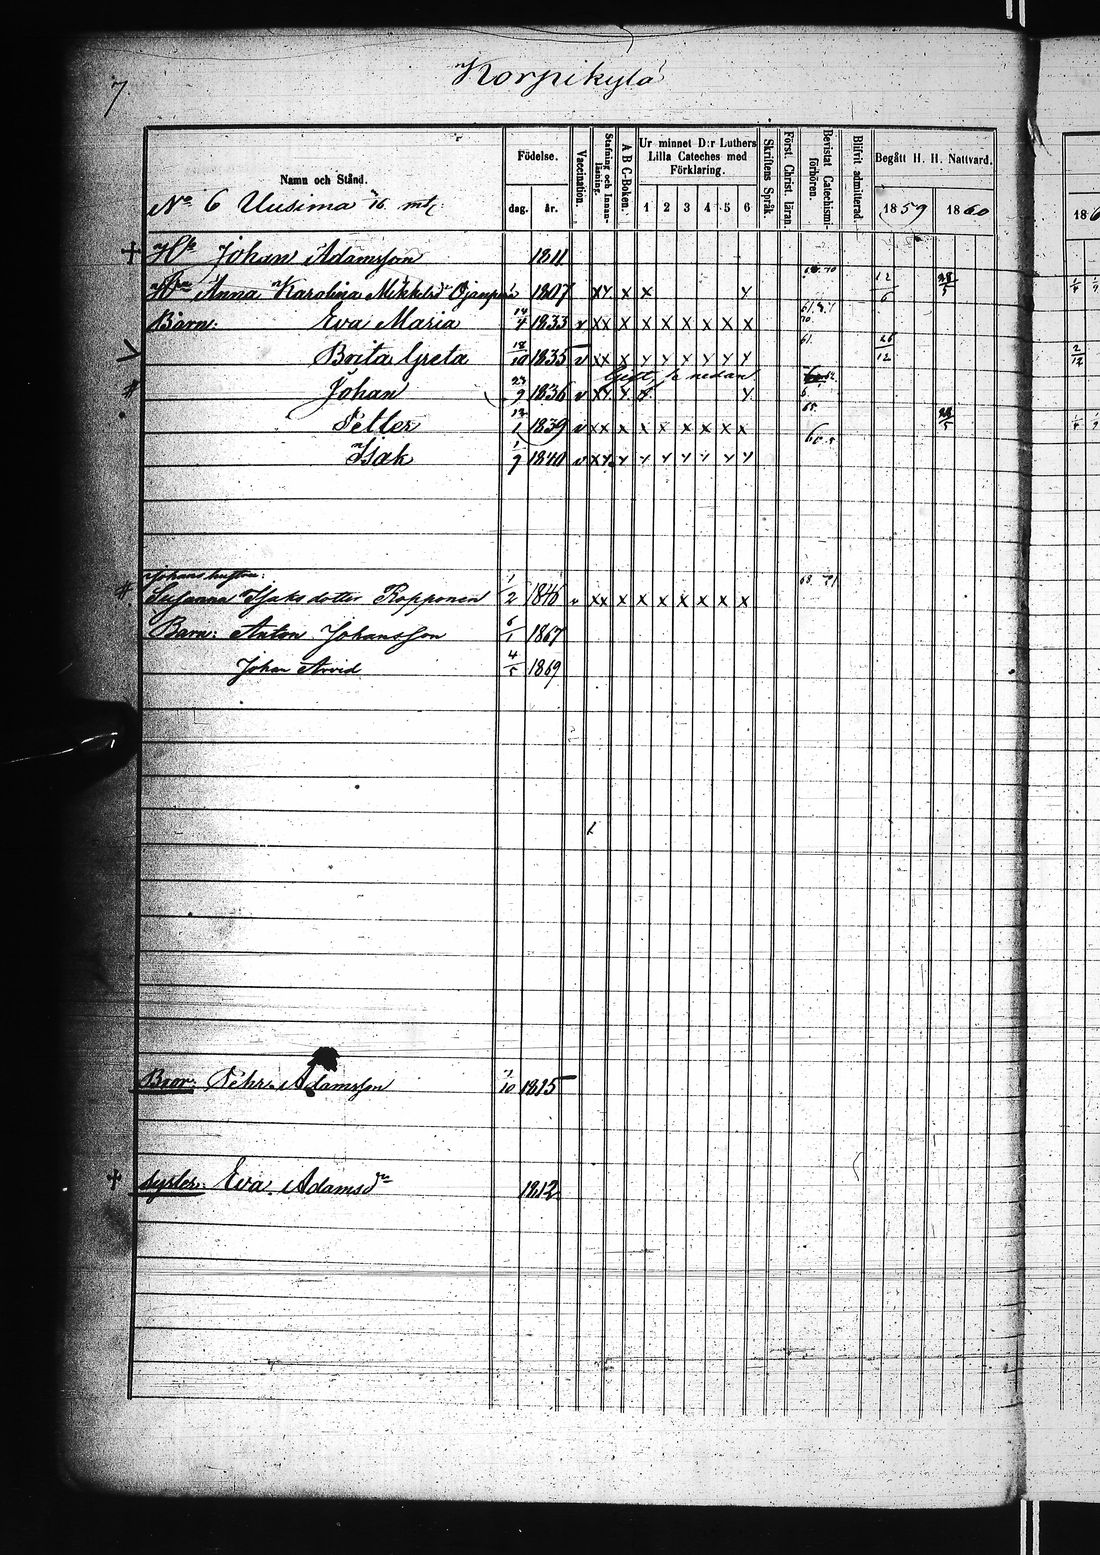 7
Korpikylä
Namn och Stånd.
Födelse.
dag. år.
Vaccination.
Stafning och Innanläsning.
A B C-Boken.
Ur minnet D:r Luthers
Lilla Cateches med
Förklaring.
1 2 3 4 5 6
Skriftens Språk.
Först. Christ. läran.
Bevistat Catechismiförhören.
Blifvit admitterad.
Begått H. H. Nattvard.
1859 1860 186
No 6 Uusima mtl
Johan Adamsson 1811
Anna Karolina 1807 x y x x y 12/6 28/5
Barn: Eva Maria 14/4 1833 v x x x x x x x x x
Brita Greta 18/10 1835 v x x x y y y y y y 61. 26/12 2/12
Gift, nedan
Johan 23/9 1836 v x y y x y
Petter 12/1 1839 v x x x x x x x x x 28/5
Isak 1/9 1840 v x y y y y y y y y
Johans hustru:
Susanna Isaks dotter Kopponen 1/2 1846 v x x x x x x x x x
Barn: Anton Johansson 6/1 1867
Johan Arvid 4/5 1869
Bror: Pehr Adamsson 1815
syster: Eva Adamsdr 1812